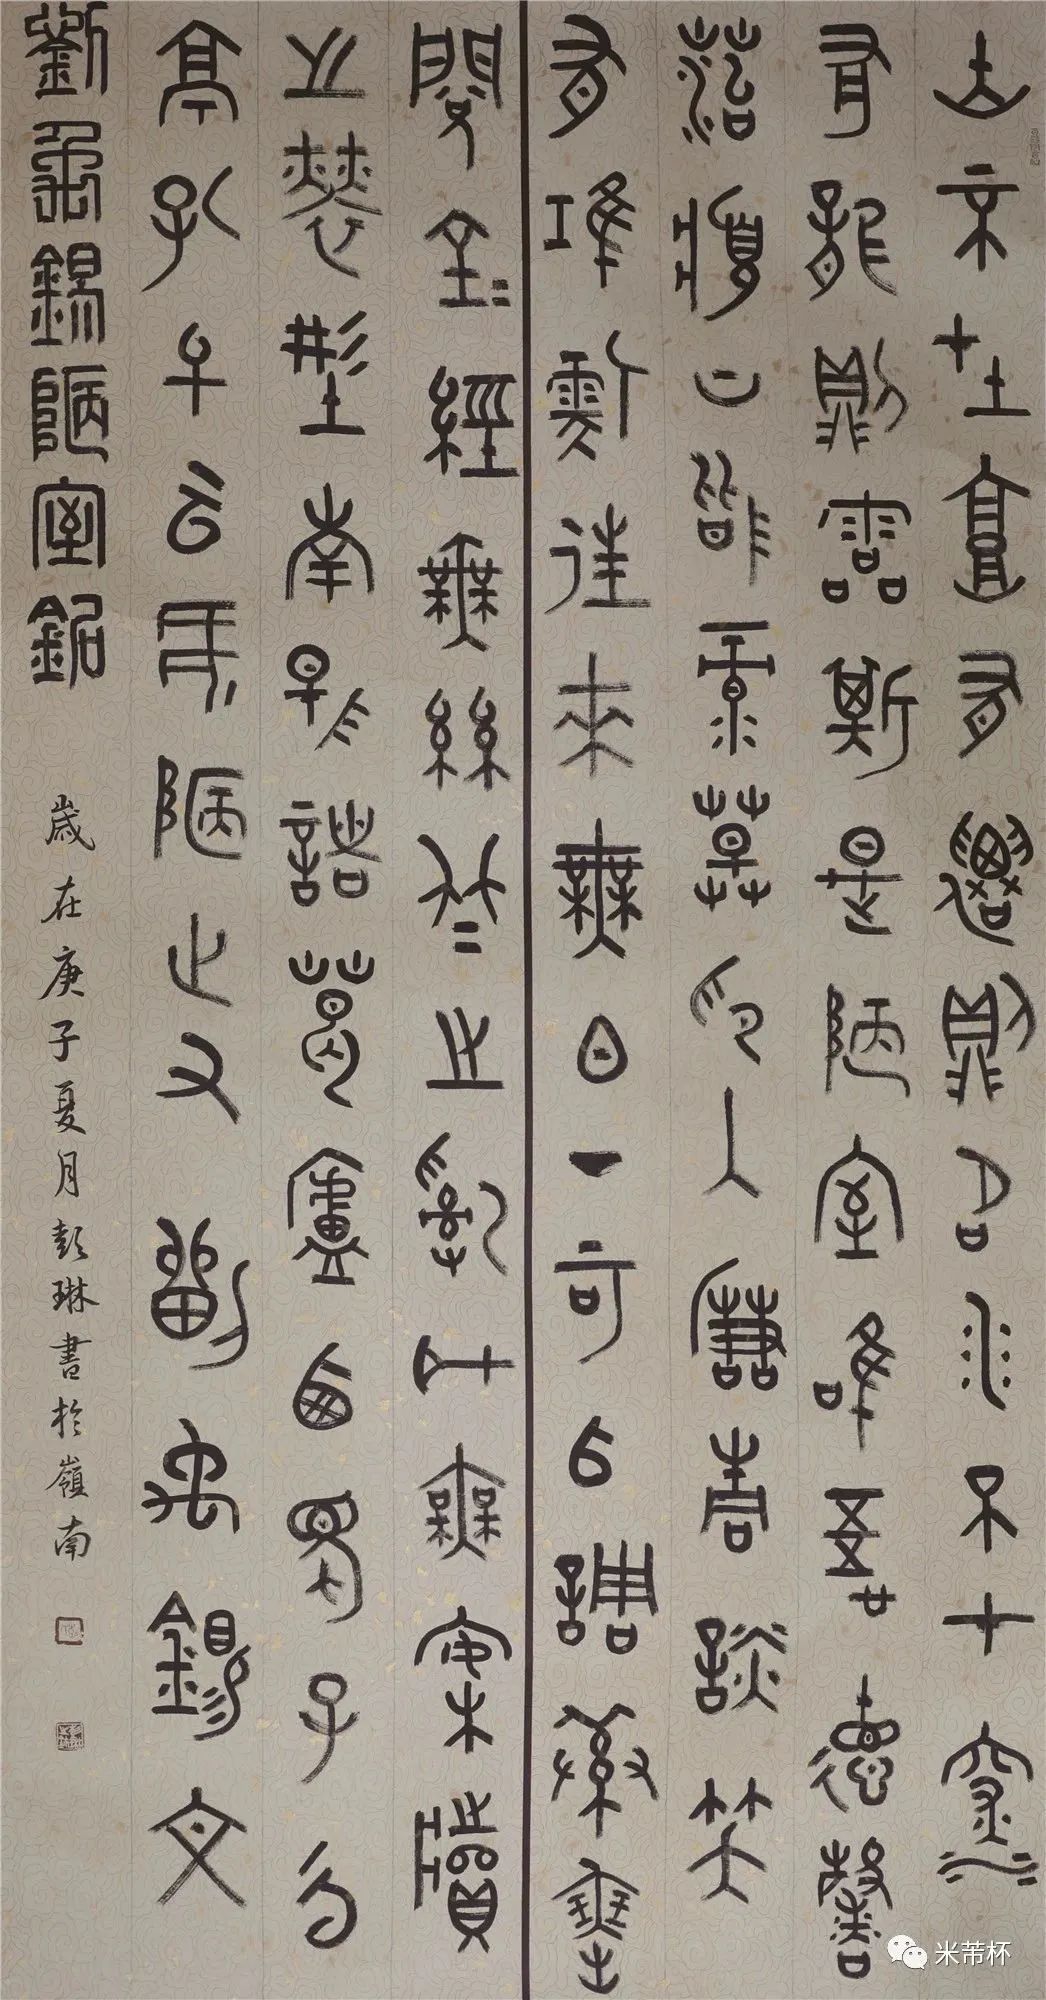 山不在高有僊則名水不在深
有龍則靈斯是陋室唯吾德馨
苔痕上階綠草色入簾青談笑
有鴻儒往來無白丁可以調素琴
閱金經無絲竹之亂耳無案牘
之勞形南陽諸葛廬西蜀子云
亭孔子云何陋之有劉禹錫文
劉禹錫陋室銘
歲在庚子夏月彭琳書於嶺南
米芾杯